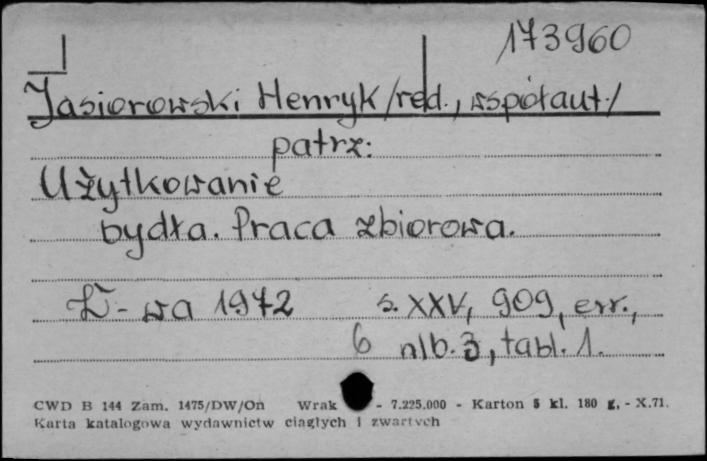 173960
Jasiorowski Henryk /red., współaut./
patrz:
Użytkowanie
bydła. Praca zbiorowa.
W-wa 1972 s. XXV, 909, err.,
6 nlb. 3, tabl. 1.
CWD B 144 Zam. 1475/DW/On Wrak - 7.225.000 - Karton 5 kl. 180 g. - X.71.
Karta katalogowa wydawnictw ciągłych i zwartych